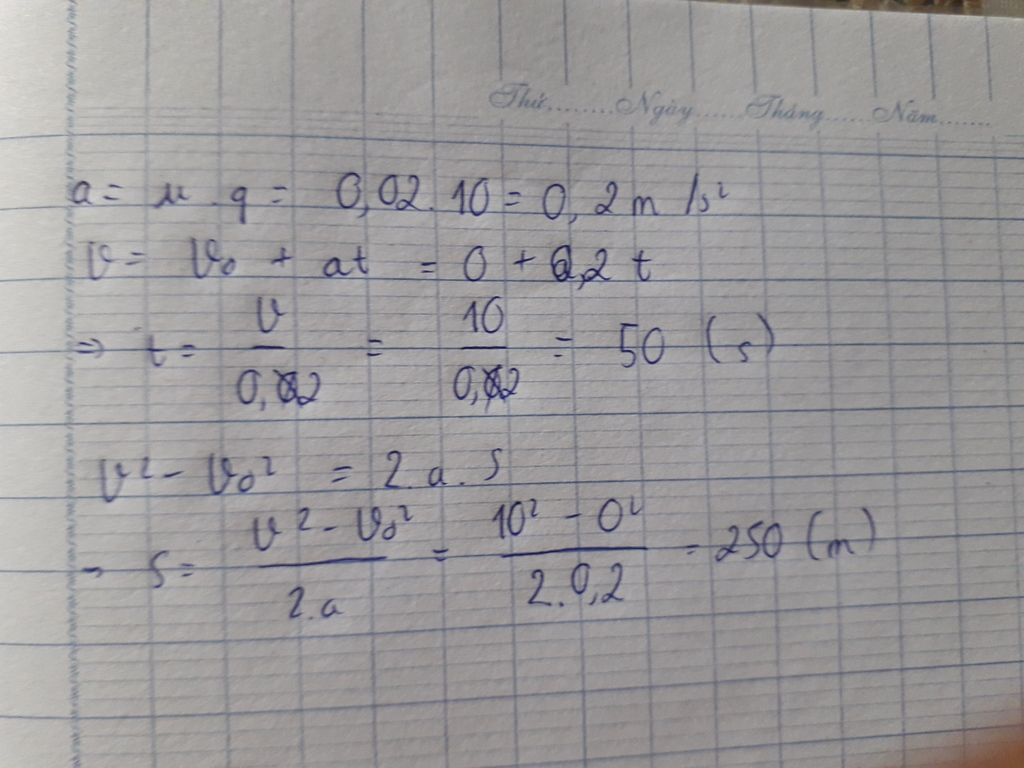 Thứ......... Ngày...... Tháng...... Năm.......
a = μ . g = 0,02 . 10 = 0,2 m/s²
v = v₀ + at = 0 + 0,2 t
⇒ t = v / 0,2 = 10 / 0,2 = 50 (s)
v² - v₀² = 2.a.S
→ S = (v² - v₀²) / 2.a = (10² - 0²) / 2.0,2 = 250 (m)